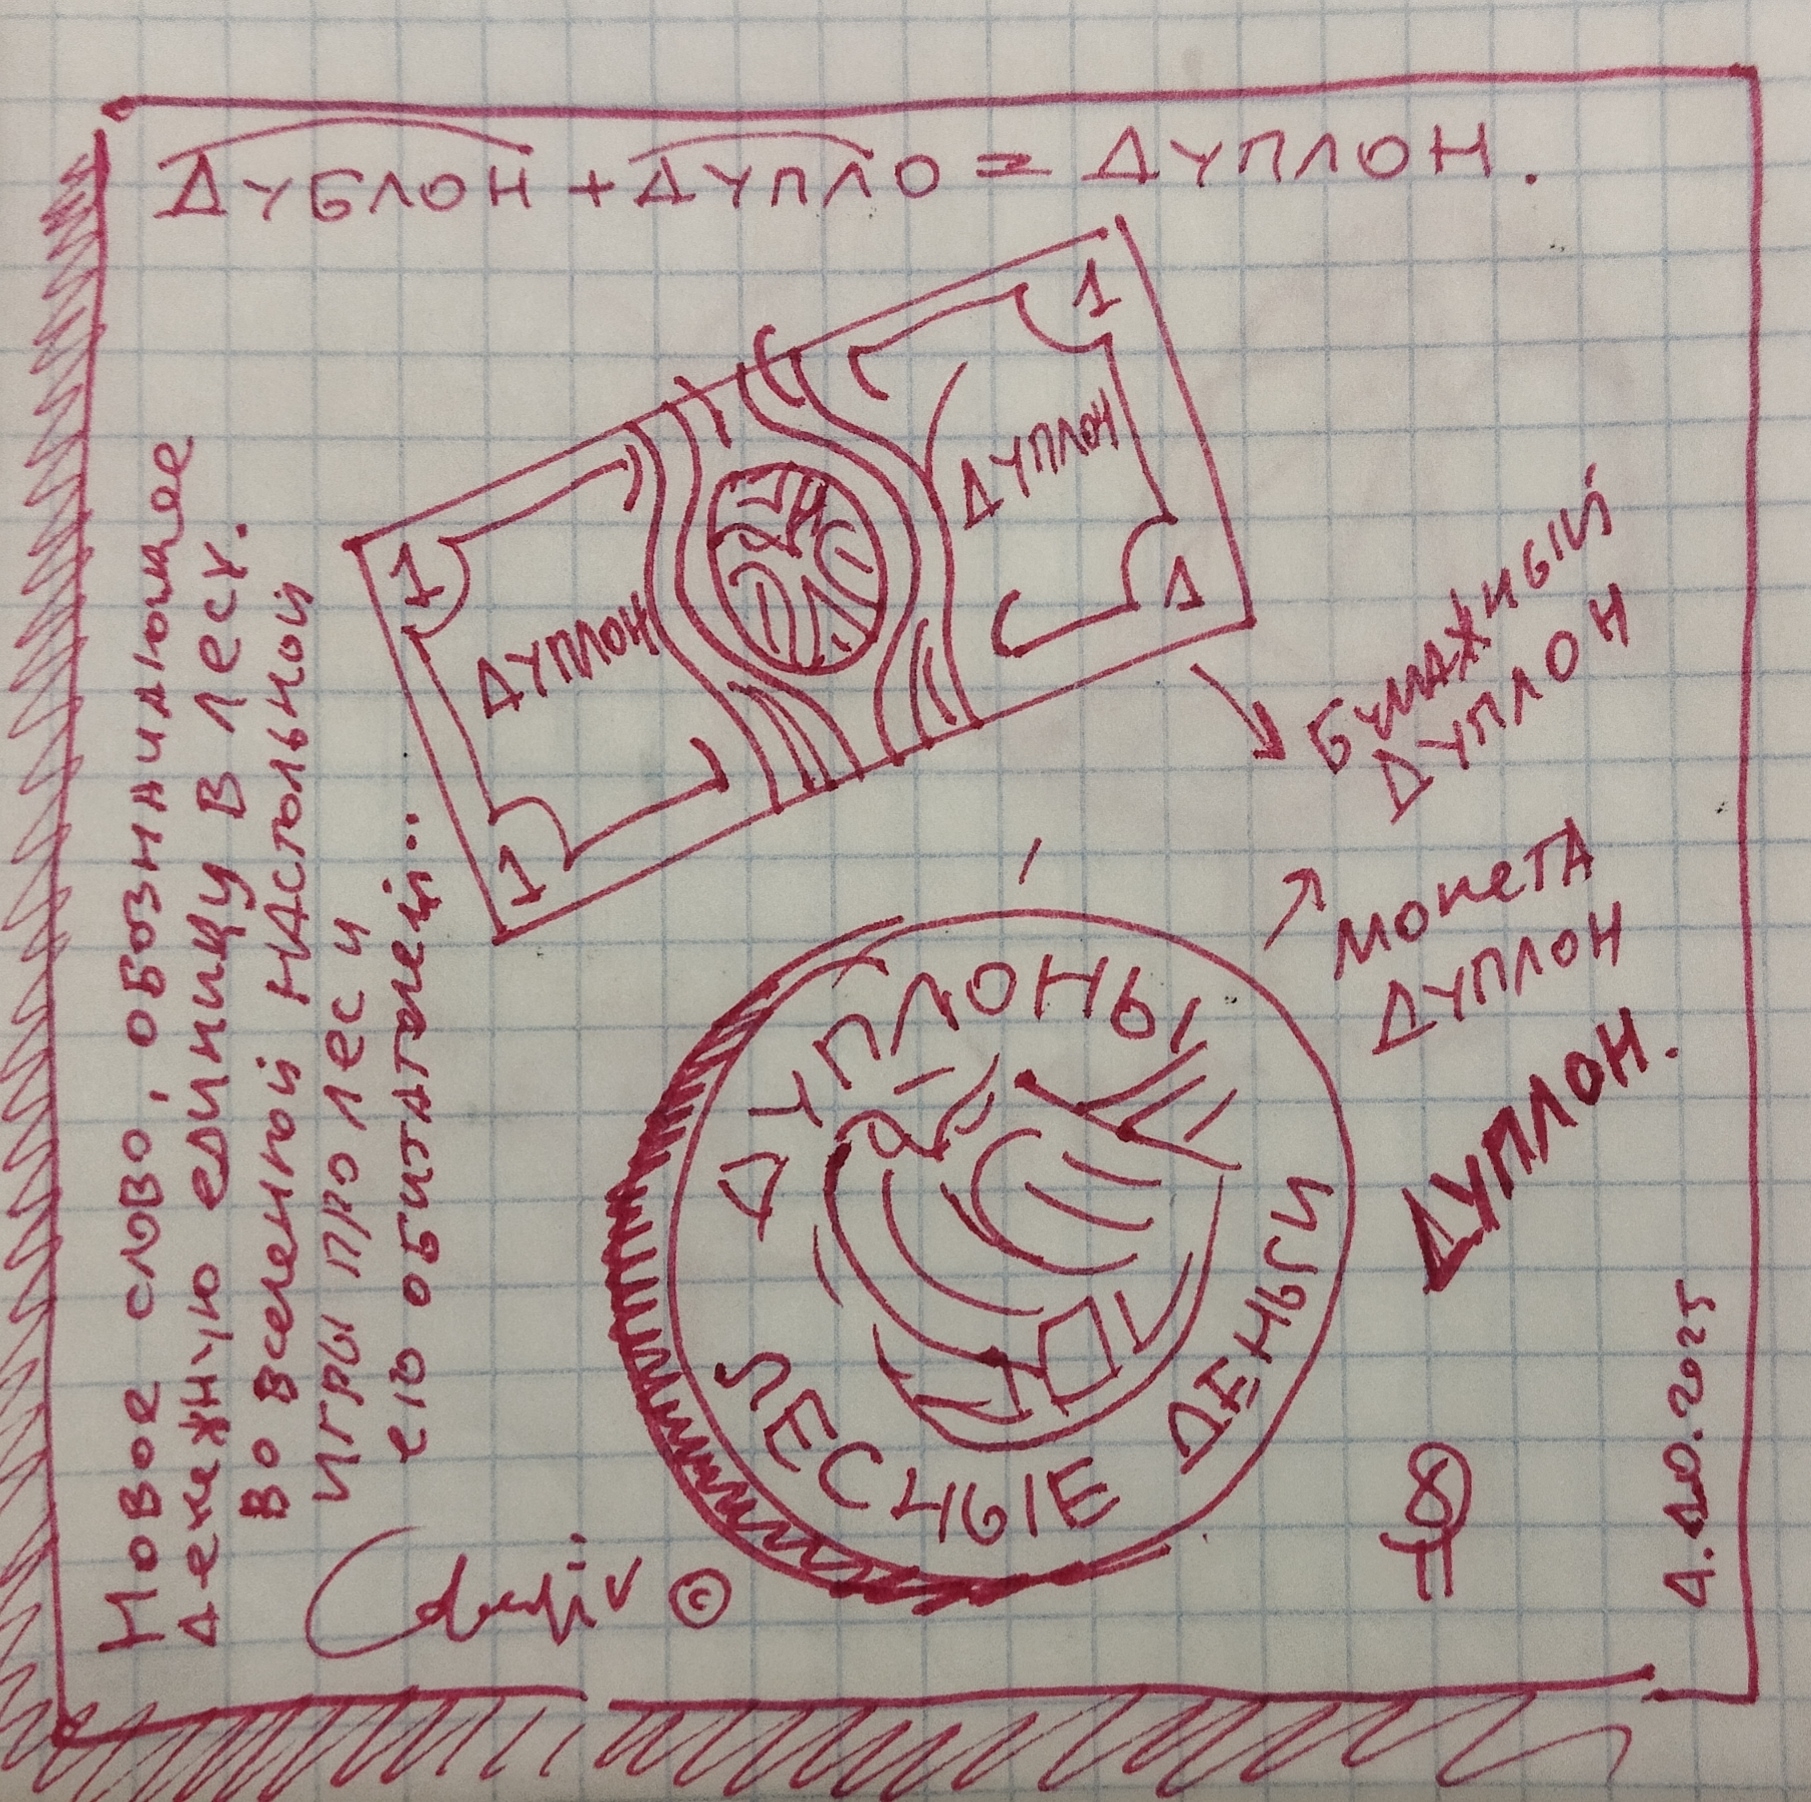 ДУБЛОН + ДУПЛО = ДУПЛОН.
1
1
ДУПЛОН
ДУПЛОН
1
1
БУМАЖНЫЙ
ДУПЛОН
МОНЕТА
ДУПЛОН
ДУПЛОН.
ДУПЛОНЫ
ЛЕСНЫЕ ДЕНЬГИ
Новое слово, обозначающее
денежную единицу в лесу.
Во вселенной настольной
игры про лес и
его обитателей...
©
4.10.2025